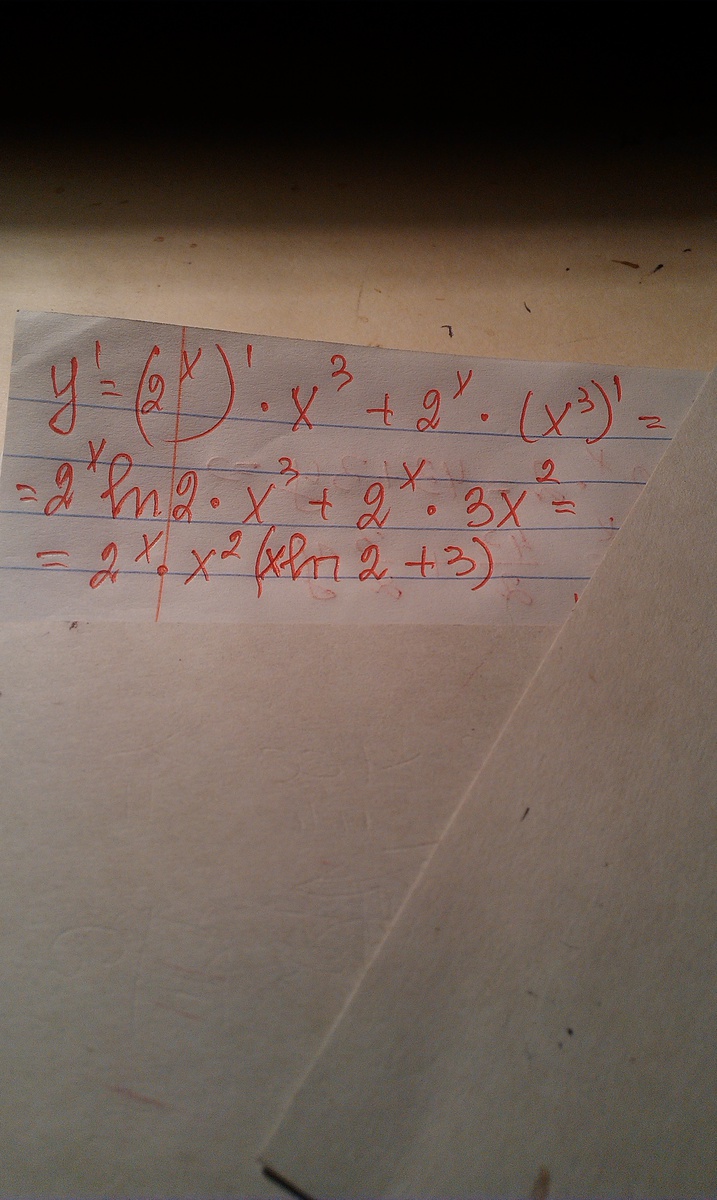 y' = (2ˣ)' · x³ + 2ˣ · (x³)' =
= 2ˣ ln 2 · x³ + 2ˣ · 3x² =
= 2ˣ · x² (x ln 2 + 3)